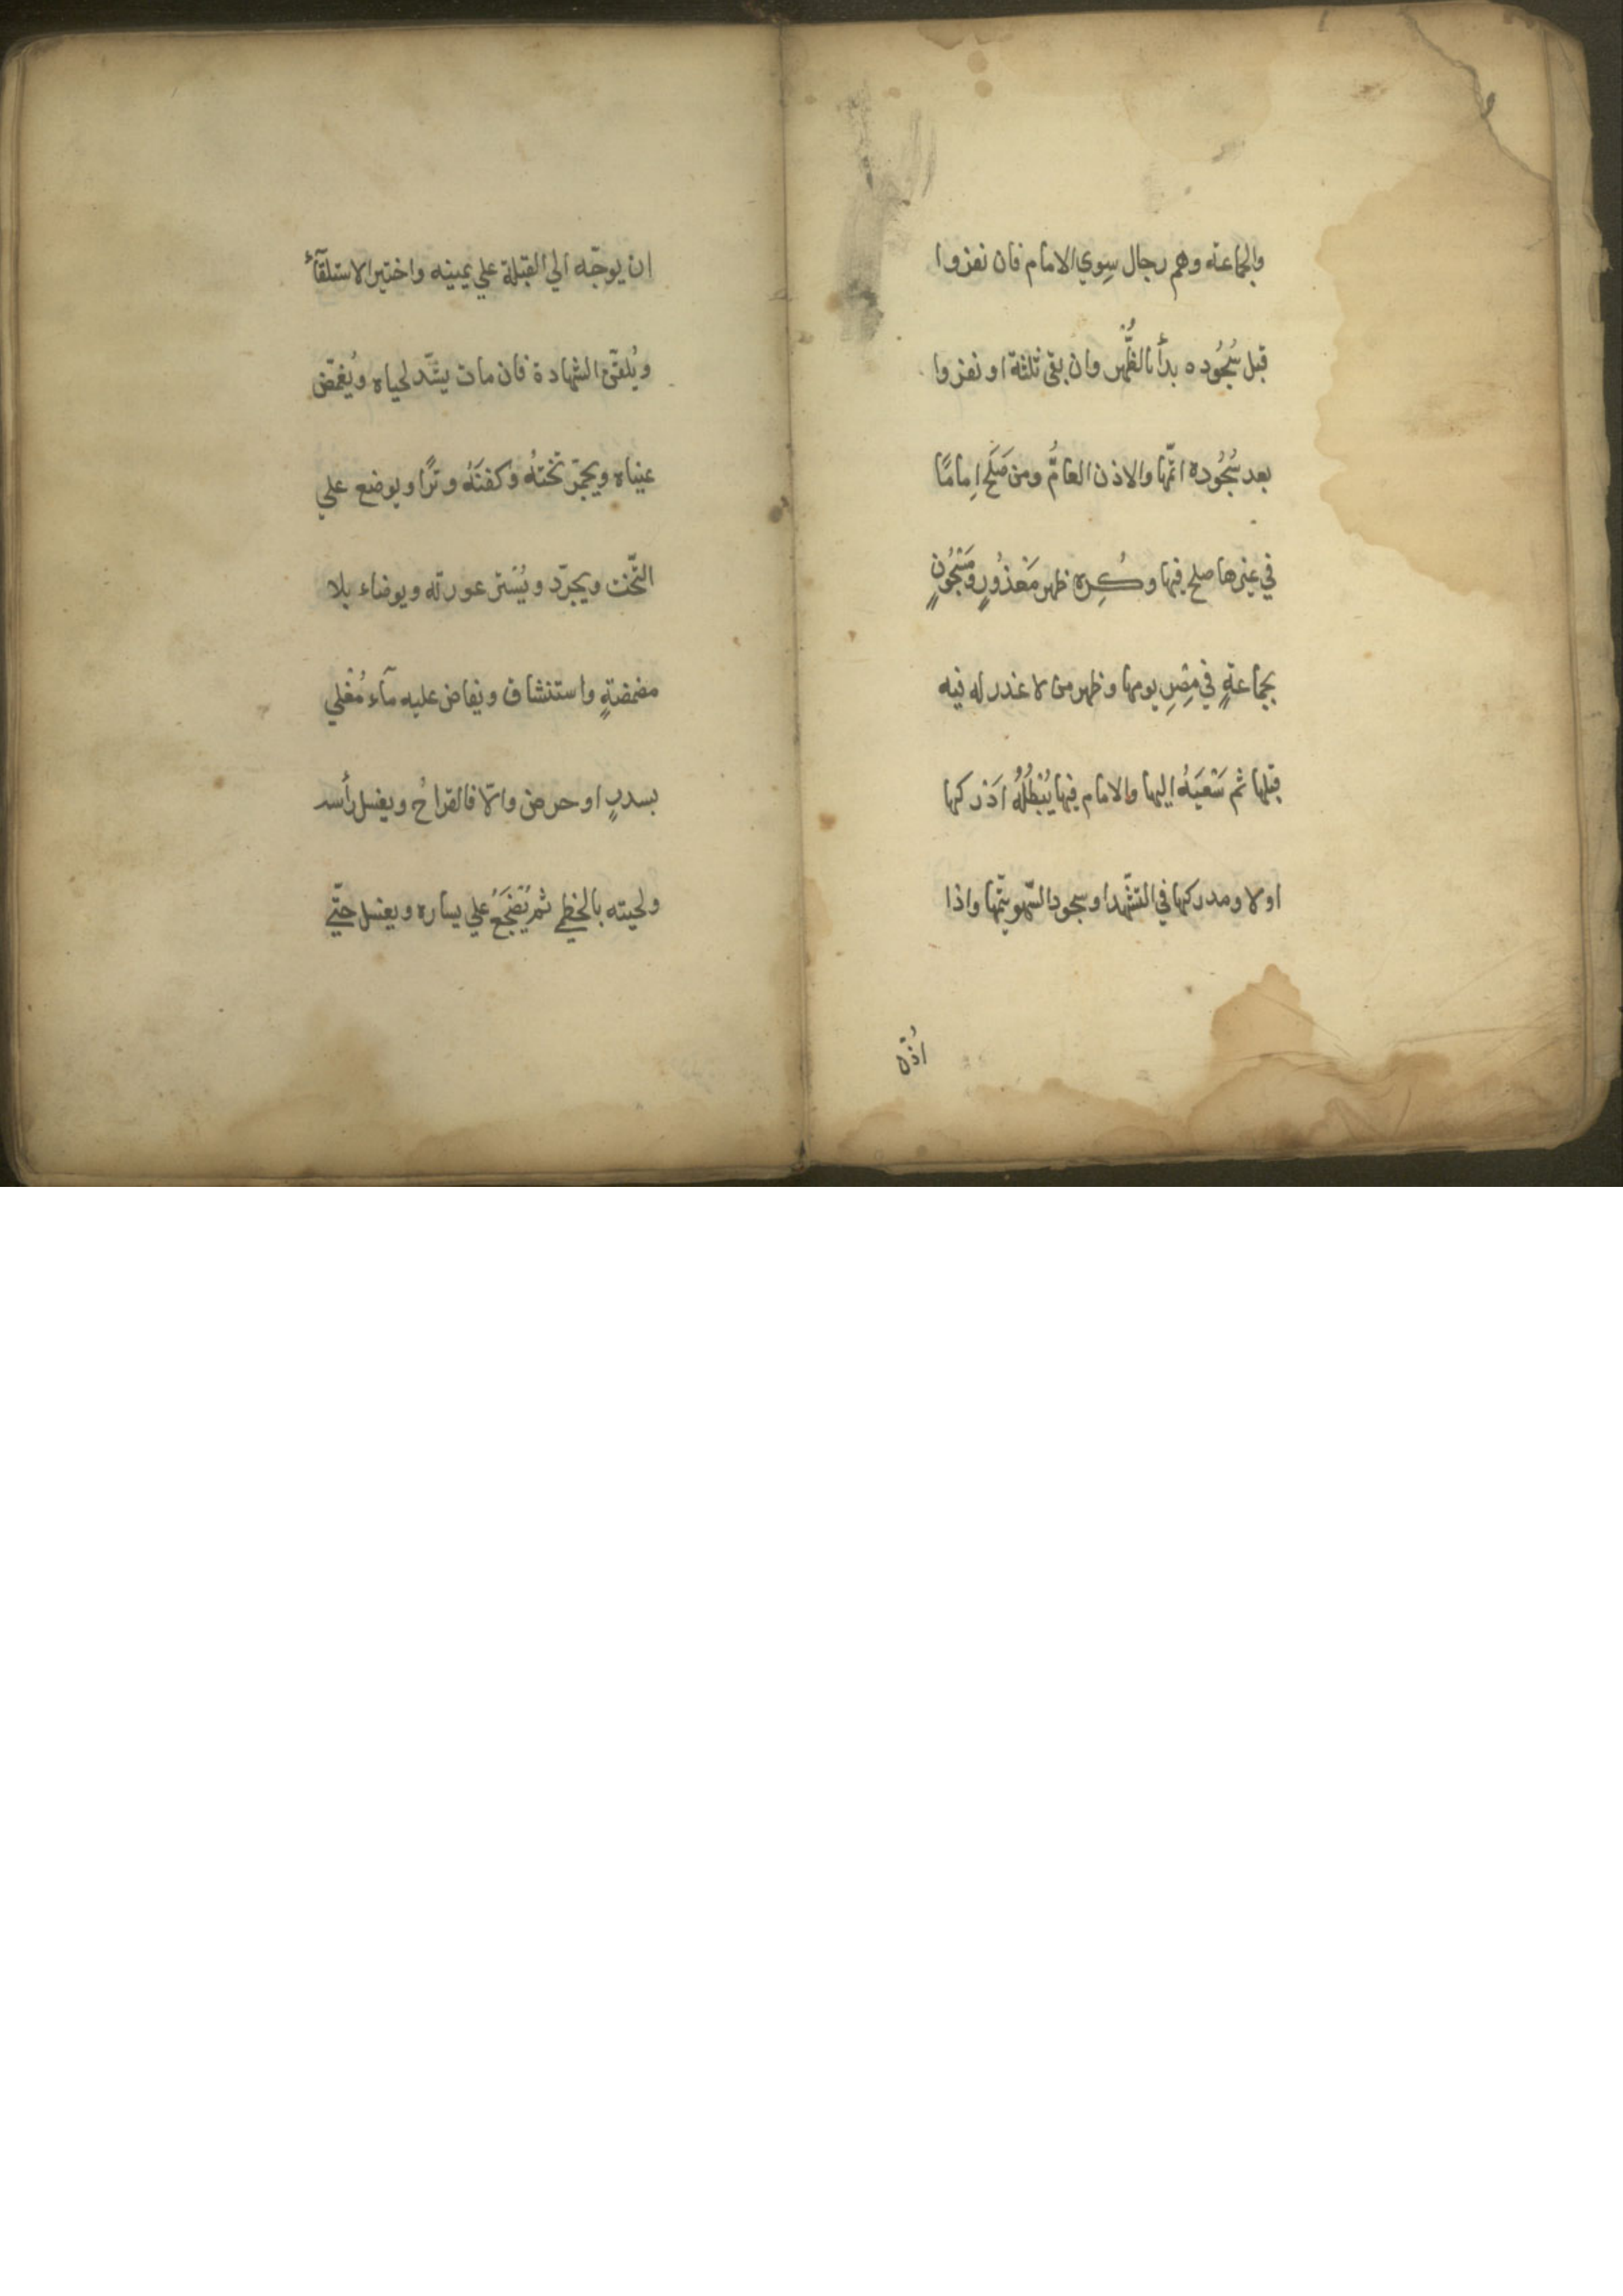 والجماعة وهم رجال سِوي الامام فان نفروا
قبل سُجُوده بدأ بالظُّهر وان بقي ثلثة او نفروا
بعد سُجُوده اتمّها والاذن العامُّ ومن صَلَح اِمامًا
في غيرها صلح فيها وكُرِه ظهر مَعْذُورٍ ومَسْجُونٍ
بجماعةٍ في مِصْرِ يومها وظهر من لا عذر له فيه
قبلها ثم سَعْيَهُ اليها والامام فيها يُبْطِلُهُ اَدْركها
او لا ومدركها في التشّهد او سجود السّهو يتمّها واذا
اُذّن
ان يوجّه الي القبلة علي يمينه واختير الاستلقآءُ
ويُلقّن الشهادة فان مات يشّد لحياه ويُغمّض
عيناه ويجمّر تختهُ وكفنَهُ وترًا ويوضع علي
التّخت ويجرّد ويُستر عورته ويوضاء بلا
مضمضةٍ واستنشاق ويفاض عليه مآء مُغلي
بسدرٍ او حرض والّا فالقراحُ ويغسل رأسه
ولحيته بالخطمي ثم يُضْجَعُ علي يساره ويغسل حتّي